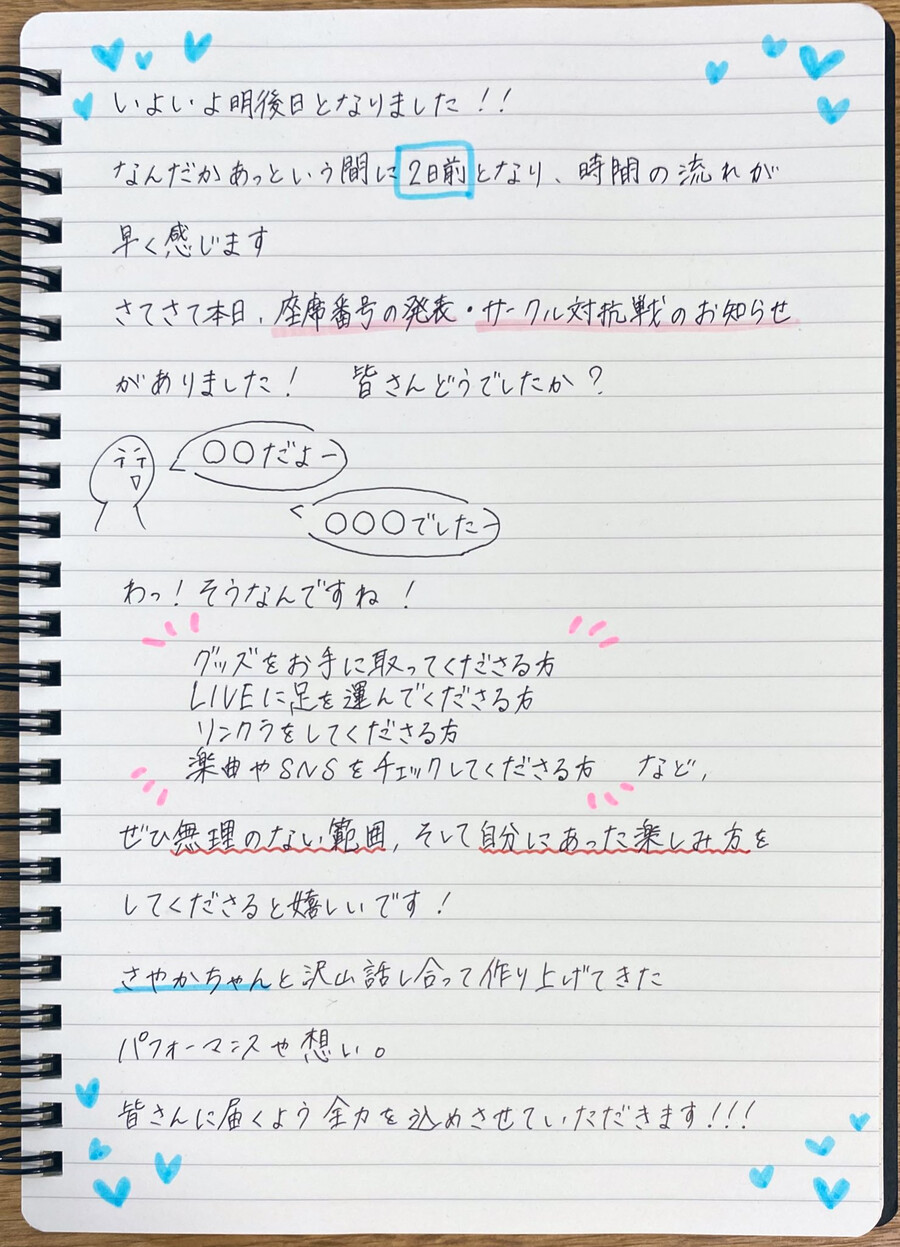 いよいよ明後日となりました!!
なんだかあっという間に2日前となり、時間の流れが
早く感じます
さてさて本日、座席番号の発表・サークル対抗戦のお知らせ
がありました! 皆さんどうでしたか?
○○だよー
○○○でしたー
わっ!そうなんですね!
グッズをお手に取ってくださる方
LIVEに足を運んでくださる方
リンクラをしてくださる方
楽曲やSNSをチェックしてくださる方 など、
ぜひ無理のない範囲、そして自分にあった楽しみ方を
してくださると嬉しいです!
さやかちゃんと沢山話し合って作り上げてきた
パフォーマンスや想い。
皆さんに届くよう全力を込めさせていただきます!!!